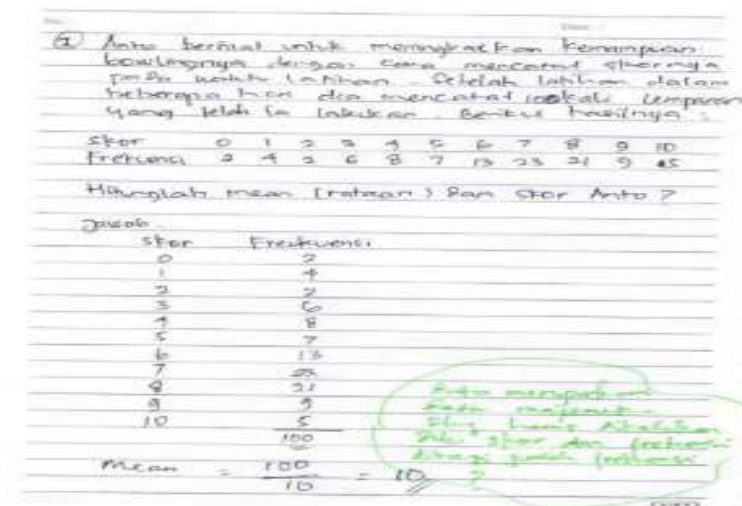 Anto berniat untuk meningkatkan kemampuan
bowlingnya dengan cara mencatat skornya
pada waktu latihan. Setelah latihan dalam
beberapa hari dia mencatat 100 kali lemparan
yang telah ia lakukan. Berikut hasilnya :
Skor 0 1 2 3 4 5 6 7 8 9 10
Frekuensi 2 4 2 6 8 7 13 23 21 9 5
Hitunglah mean (rataan) dari skor Anto ?
Jawab
Skor Frekuensi
0 2
1 4
2 2
3 6
4 8
5 7
6 13
7 23
8 21
9 9
10 5
100
Mean = 100 / 10 = 10
data majemuk
harus dikalikan
dulu skor dan frekuensi
dibagi jumlah frekuensi